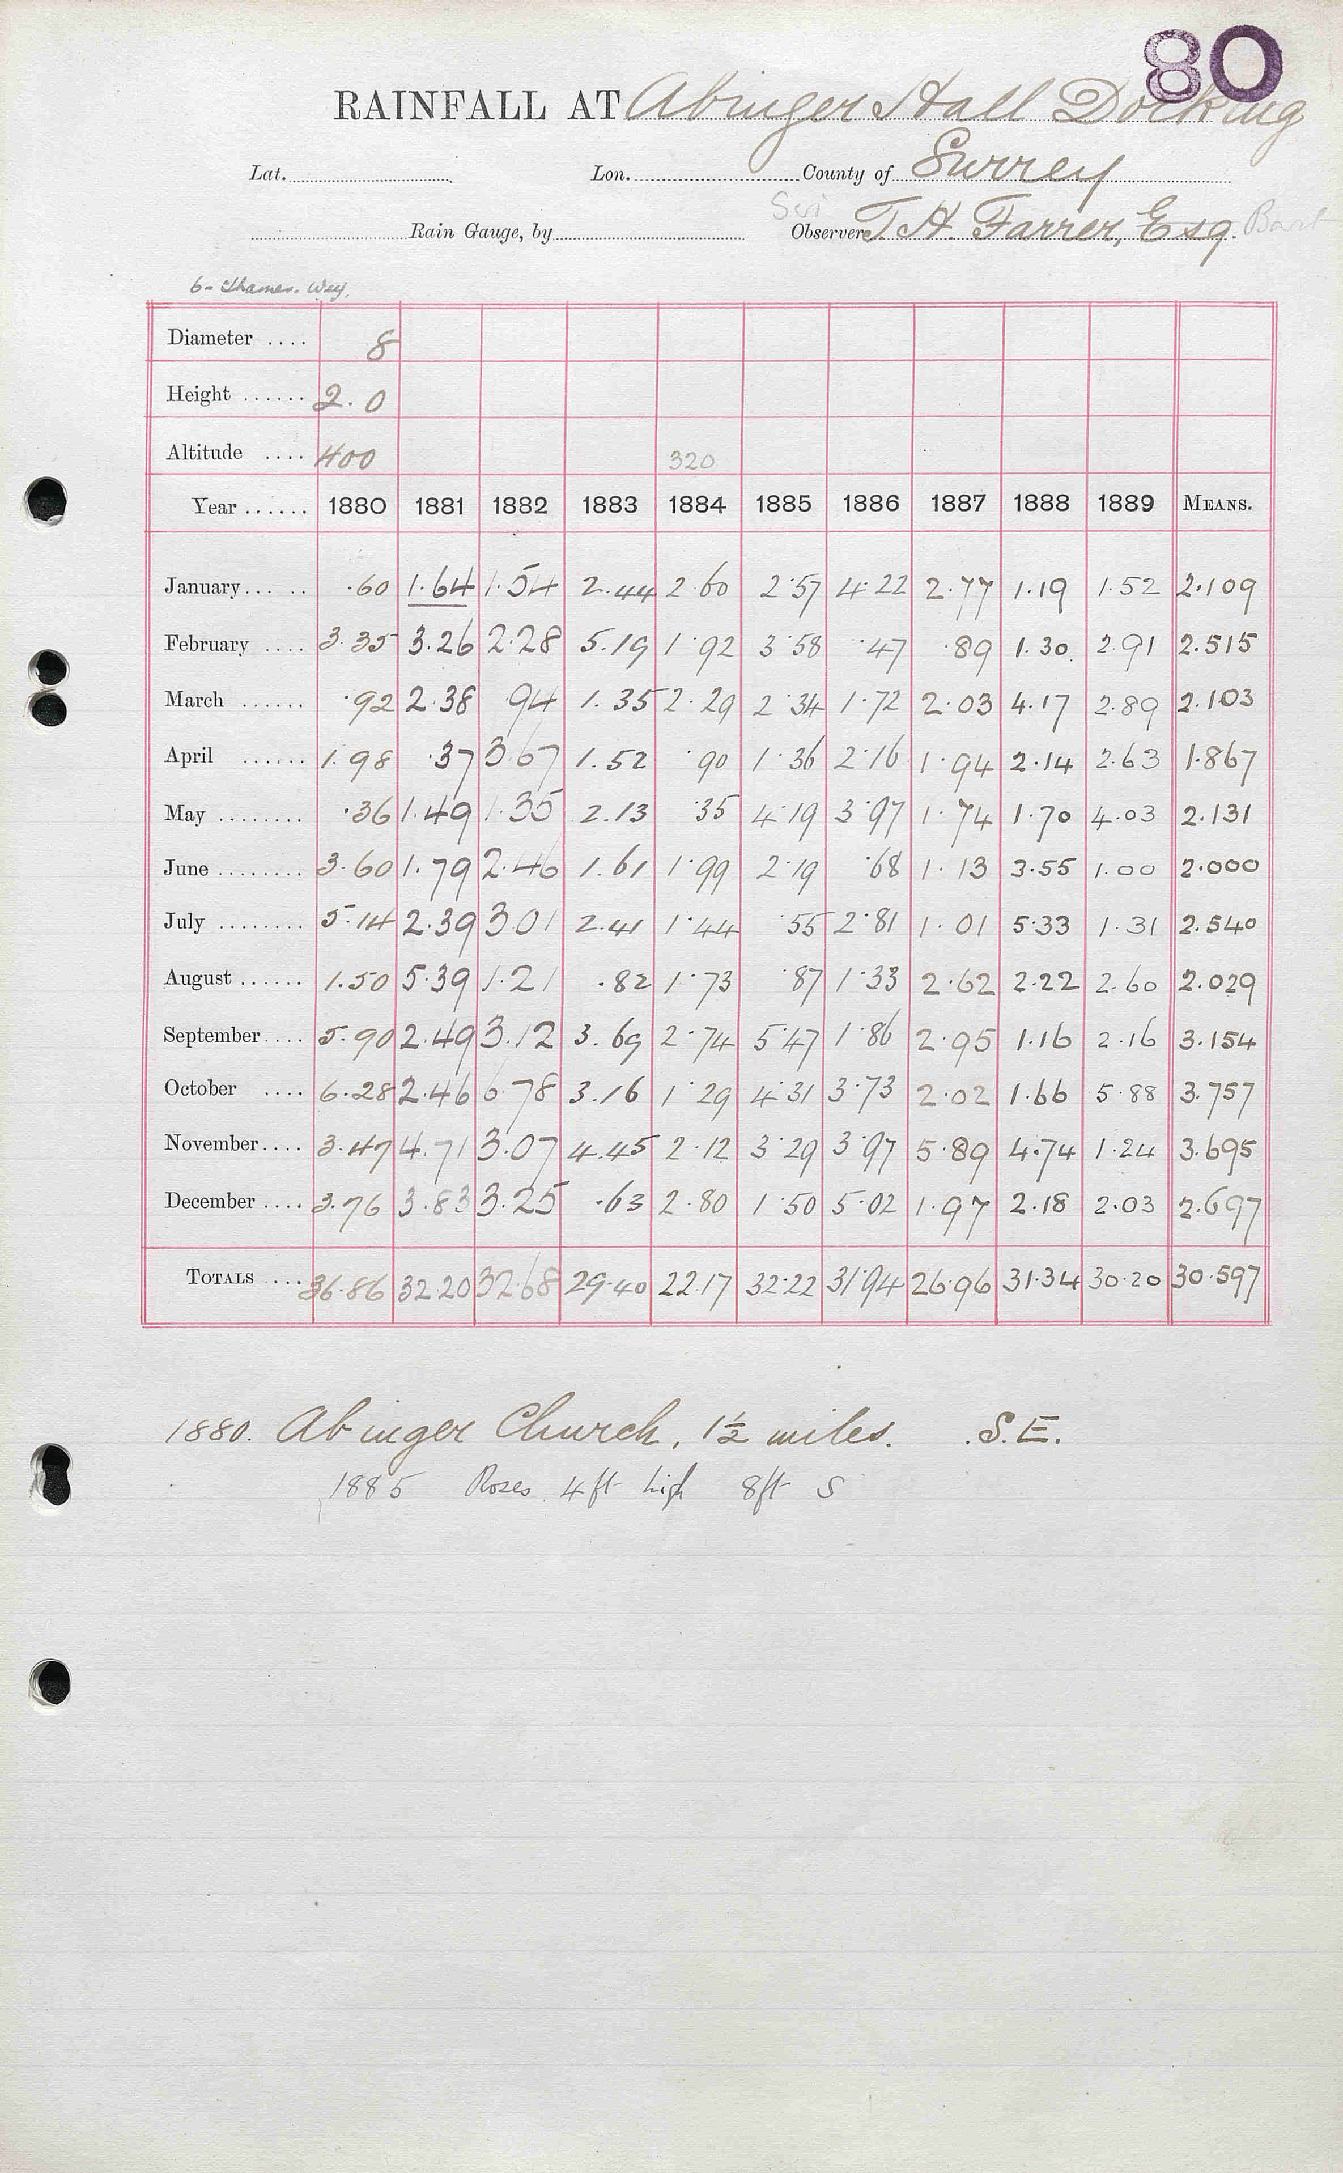 80
RAINFALL AT Abinger Hall Dorking
Lat. Lon. County of Surrey
Rain Gauge, by Observer Sir T. H. Farrer, Esq. Bart
6 - Thames. Wey.
Diameter .... 8
Height ...... 2.0
Altitude .... 400 320
Year ...... 1880 1881 1882 1883 1884 1885 1886 1887 1888 1889 MEANS.
January ... .. .60 1.64 1.54 2.44 2.60 2.57 4.22 2.77 1.19 1.52 2.109
February .... 3.35 3.26 2.28 5.19 1.92 3.58 .47 .89 1.30 2.91 2.515
March ...... .92 2.38 .94 1.35 2.29 2.34 1.72 2.03 4.17 2.89 2.103
April ...... 1.98 .37 3.67 1.52 .90 1.36 2.16 1.94 2.14 2.63 1.867
May ........ .36 1.49 1.35 2.13 .35 4.19 3.97 1.74 1.70 4.03 2.131
June ........ 3.60 1.79 2.46 1.61 1.99 2.19 .68 1.13 3.55 1.00 2.000
July ........ 5.14 2.39 3.01 2.41 1.44 .55 2.81 1.01 5.33 1.31 2.540
August ...... 1.50 5.39 1.21 .82 1.73 .87 1.33 2.62 2.22 2.60 2.029
September .... 5.90 2.49 3.12 3.69 2.74 5.47 1.86 2.95 1.16 2.16 3.154
October .... 6.28 2.46 6.78 3.16 1.29 4.31 3.73 2.02 1.66 5.88 3.757
November .... 3.47 4.71 3.07 4.45 2.12 3.29 3.97 5.89 4.74 1.24 3.695
December .... 3.76 3.83 3.25 .63 2.80 1.50 5.02 1.97 2.18 2.03 2.697
TOTALS ... 36.86 32.20 32.68 29.40 22.17 32.22 31.94 26.96 31.34 30.20 30.597
1880. Abinger Church, 1½ miles. S.E.
1885 Roses 4 ft high 8ft S